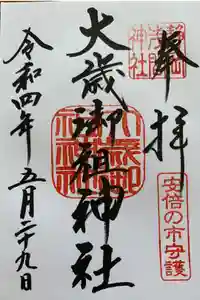 奉拝
静岡浅間神社
安倍の市守護
大歳御祖神社
令和四年五月二十九日